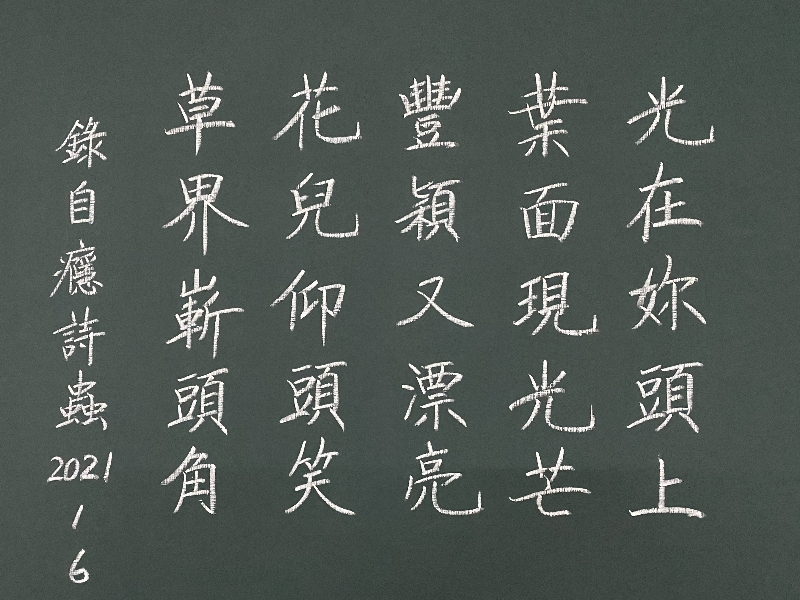 光在妳頭上
葉面現光芒
豐穎又漂亮
花兒仰頭笑
草界嶄頭角
錄自癮詩蟲
2021
1
6